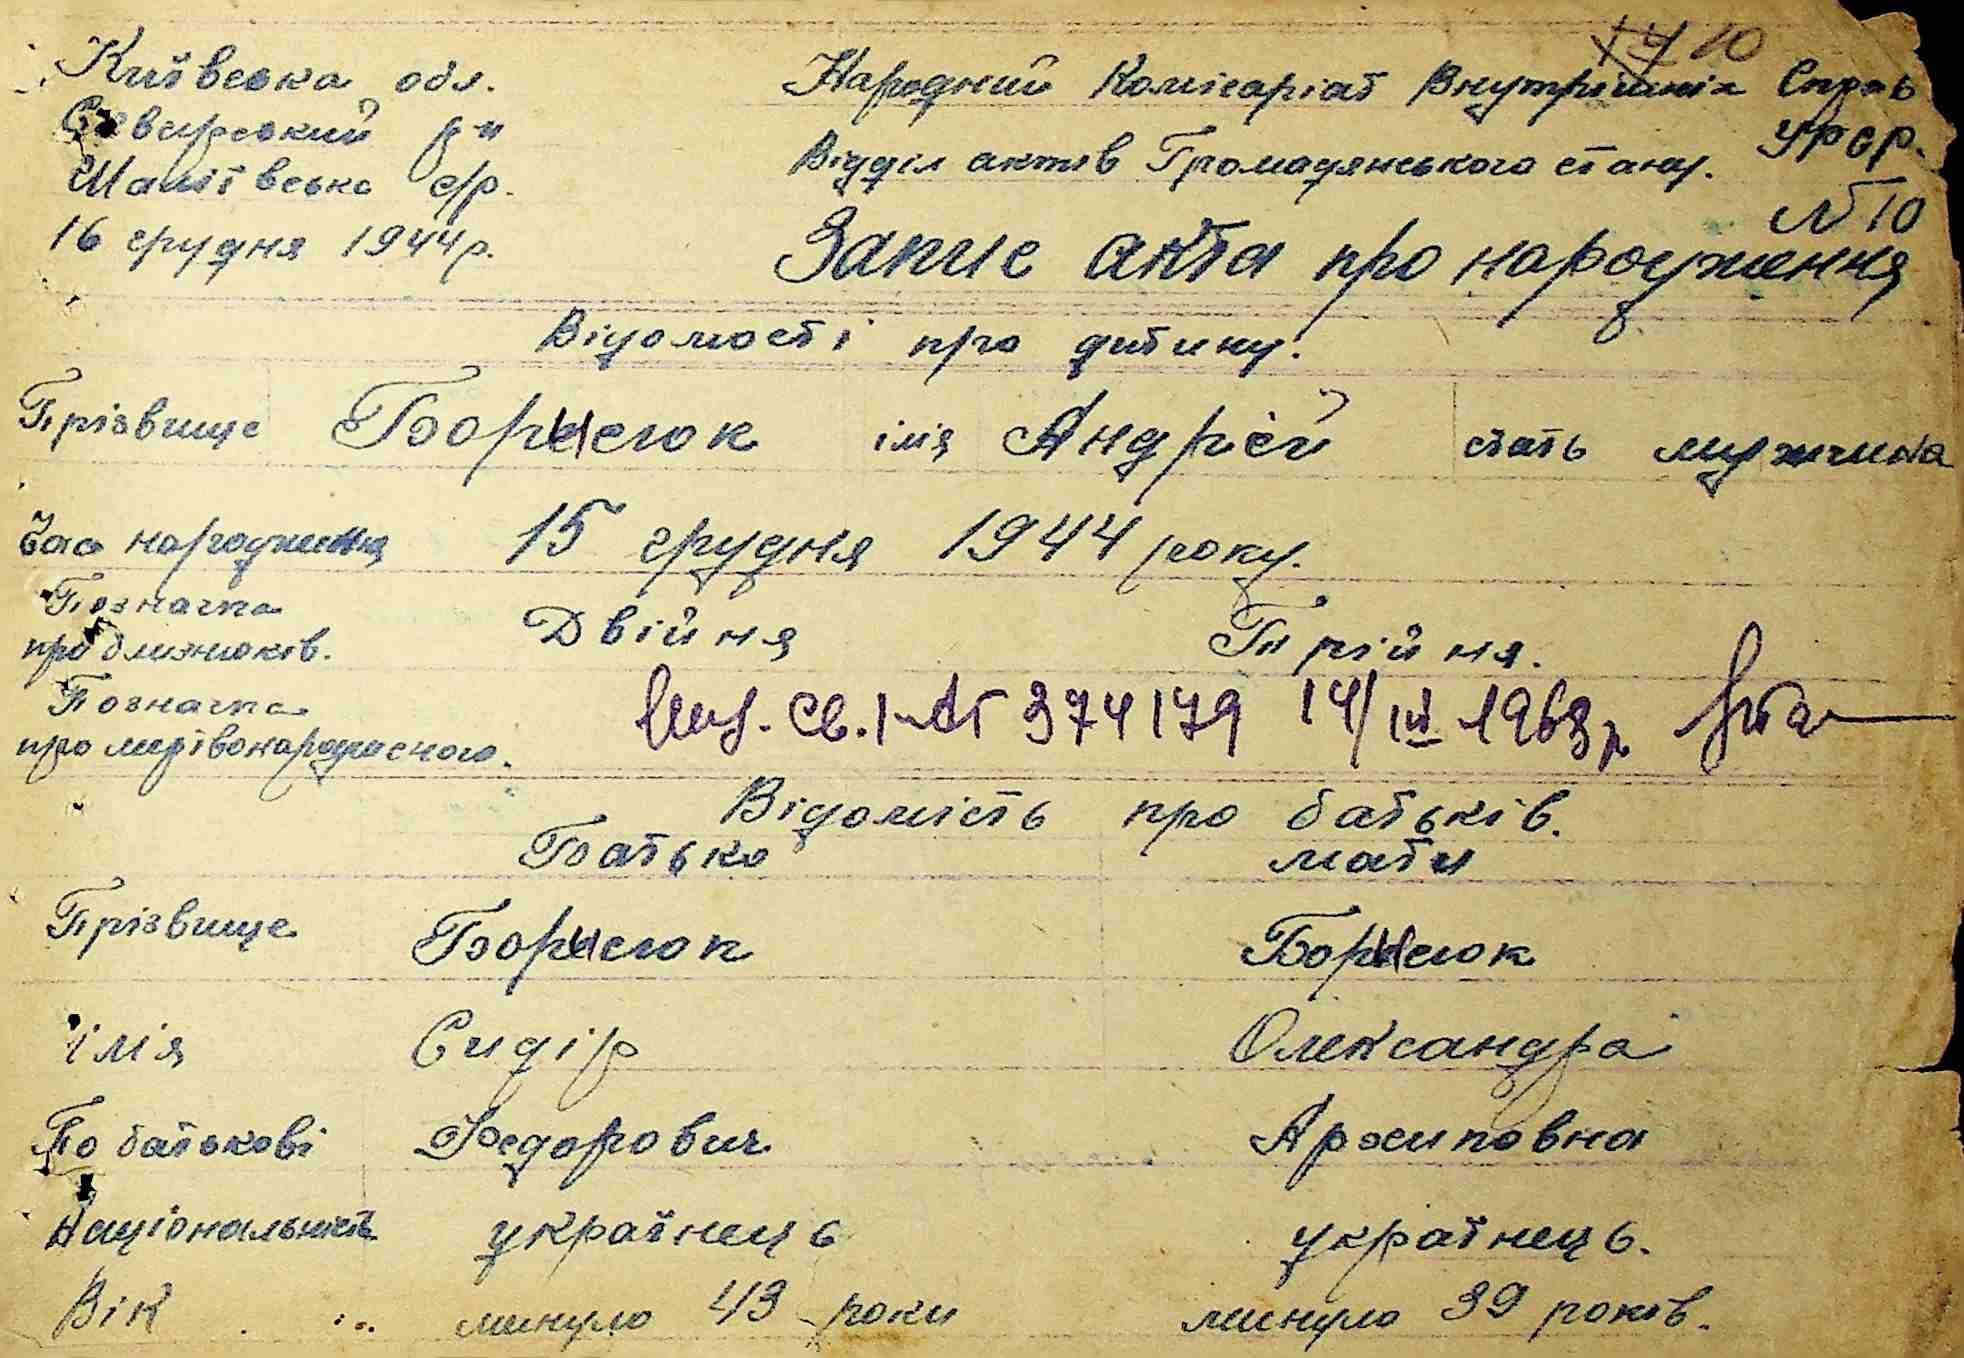 10
Київська обл. Народний Комісаріат Внутрішніх Справ
Сквирський р-н УРСР.
Шаліївська с/р. Відділ актів Громадянського стану.
16 грудня 1944 р. № 10
Запис акта про народження
Відомості про дитину.
Прізвище Борисюк імія Андрєй стать мужчина
Час народження 15 грудня 1944 року.
Позначка Двійня Трійня.
про близнюків.
Позначка св. I-АГ 374179 14/III 1963 р.
про мертвонародженого.
Відомість про батьків.
Батько мати
Прізвище Борисюк Борисюк
імія Сидір Олександра
По батькові Федорович Архиповна
Національність українець українець.
Вік минуло 43 роки минуло 39 років.